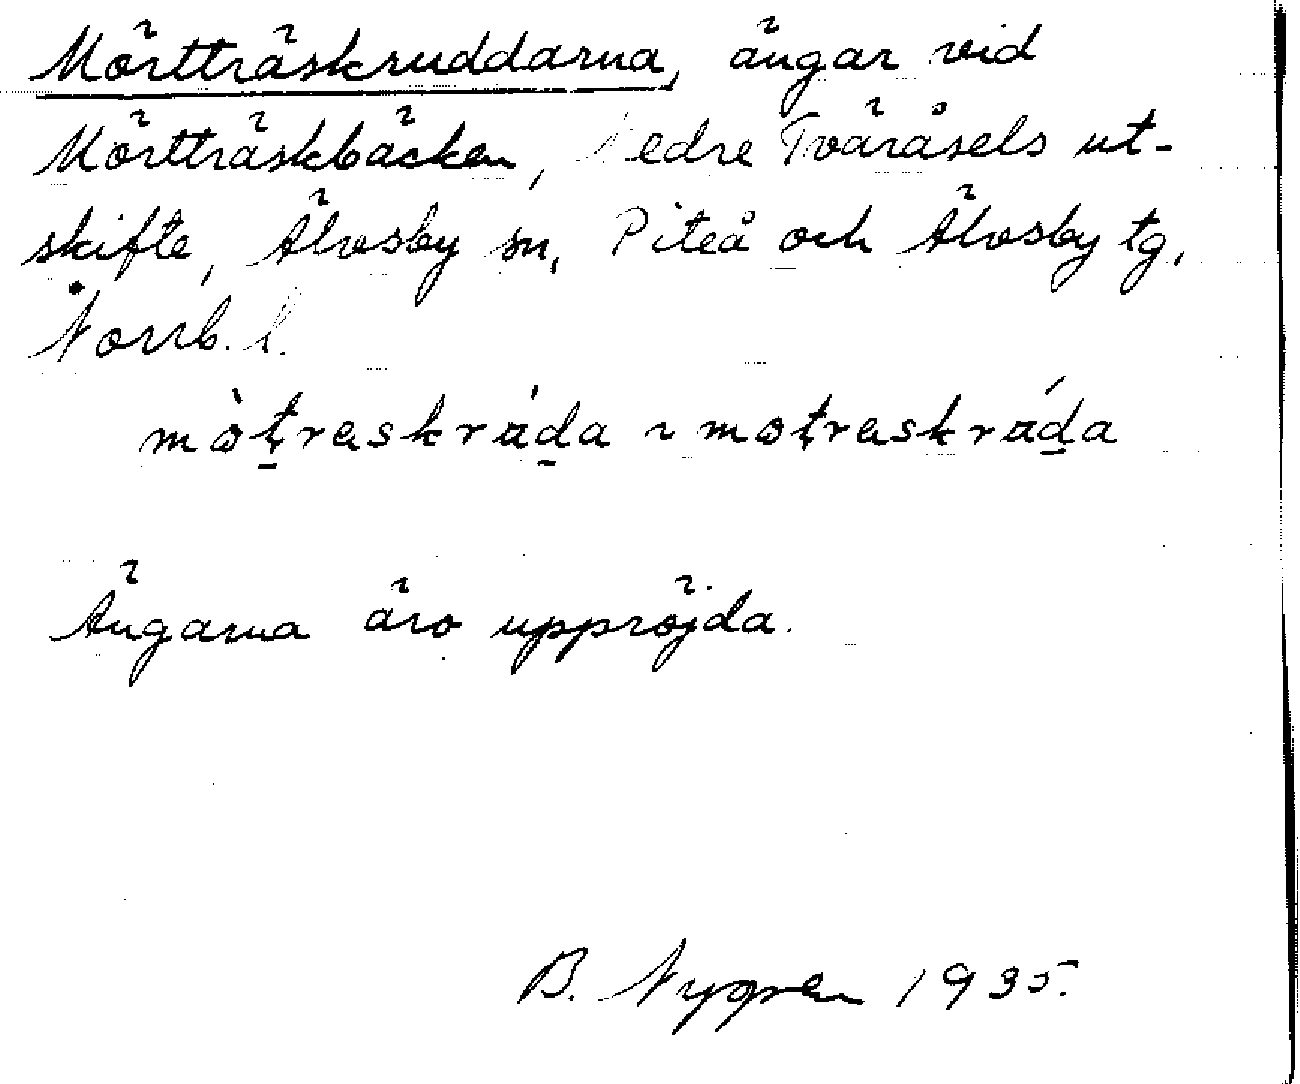 Mörtträskruddarna, ängar vid
Mörtträskbäcken, Nedre Tväråsels ut-
skifte, Älvsby sn, Piteå och Älvsby tg,
Norrb. l.
mòt̩raskráda ~ mot̩raskráda
Ängarna äro uppröjda.
B. Nygren 1935.